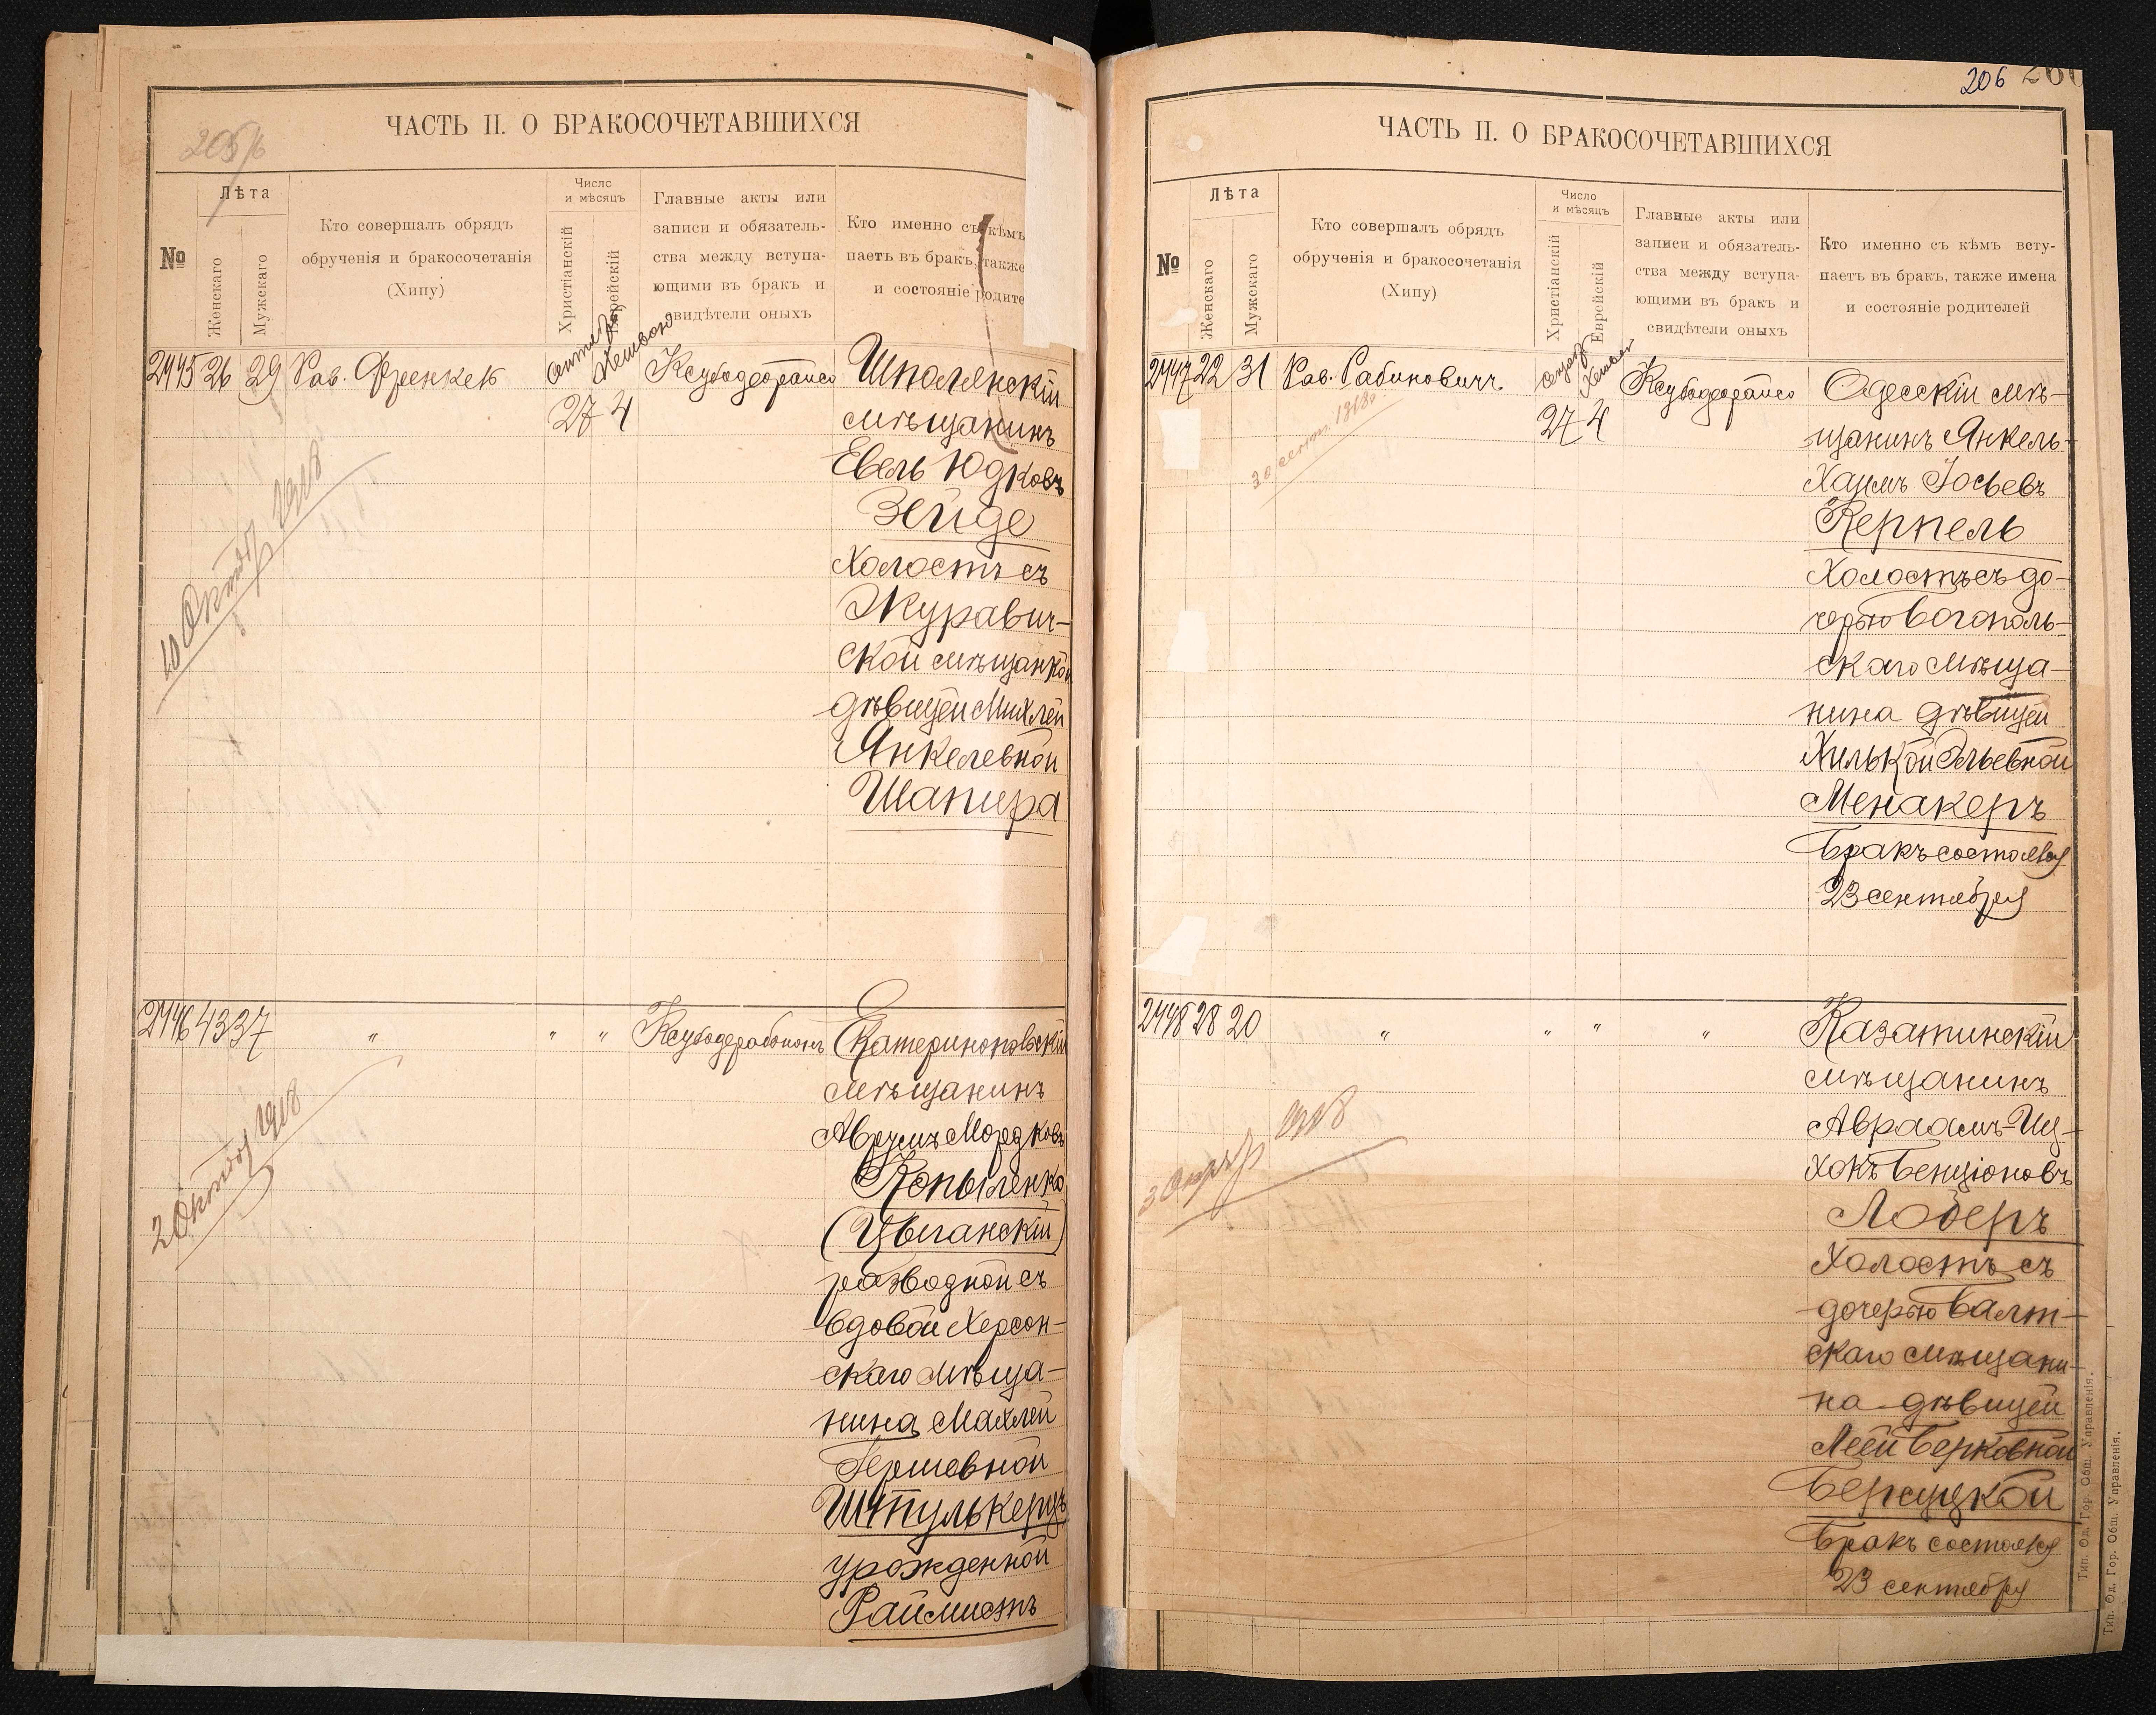 205/6
ЧАСТЬ II. О БРАКОСОЧЕТАВШИХСЯ
№
Лѣта
Женскаго
Мужскаго
Кто совершалъ обрядъ
обрученія и бракосочетанія
(Хипу)
Число
и мѣсяцъ
Христіанскій
Еврейскій
Главные акты или
записи и обязатель-
ства между вступа-
ющими въ бракъ и
свидѣтели оныхъ
Кто именно съ кѣмъ
паетъ въ бракъ, также
и состояніе родите
2445 26 29 Рав. Френкель
27 4
Шполянскій
мѣщанинъ
Евель Юдковъ
Зейде
Холостъ съ
Журавич-
ской мѣщанкой
дѣвицей Михлей
Янкелевной
Шапира
10 Октябр 1918
2446 43 37 " " "
Екатеринопольскій
мѣщанинъ
Аврумъ Мордковъ
Копыленко
(Цыганскій)
разводной съ
вдовой Херсон-
скаго мѣща-
нина Махлей
Гершовной
Штулькерцъ
урожденной
Раймистъ
2 Октябр 1918
206 260
ЧАСТЬ II. О БРАКОСОЧЕТАВШИХСЯ
№
Лѣта
Женскаго
Мужскаго
Кто совершалъ обрядъ
обрученія и бракосочетанія
(Хипу)
Число
и мѣсяцъ
Христіанскій
Еврейскій
Главные акты или
записи и обязатель-
ства между вступа-
ющими въ бракъ и
свидѣтели оныхъ
Кто именно съ кѣмъ всту-
паетъ въ бракъ, также имена
и состояніе родителей
2447 22 31 Рав. Рабиновичъ
27 4
30 сент. 1918
Одесскій мѣ-
щанинъ Янкель-
Хаимъ Іосьевъ
Керпель
Холостъ съ до-
черью Богополь-
скаго мѣща-
нина дѣвицей
Хилькой Эльевной
Менакеръ
Бракъ состоялся
23 сентября
2448 28 20 " " " "
3 Октябр 1918
Казатинскій
мѣщанинъ
Авраамъ-Иц-
хокъ Бенціоновъ
Лодеръ
Холостъ съ
дочерью Балт-
скаго мѣщани-
на дѣвицей
Леей Берковной
Берецкой
Бракъ состоялся
23 сентября
Тип. Од. Гор. Общ. Управленія.
Тип. Од. Гор. Общ. Управленія.